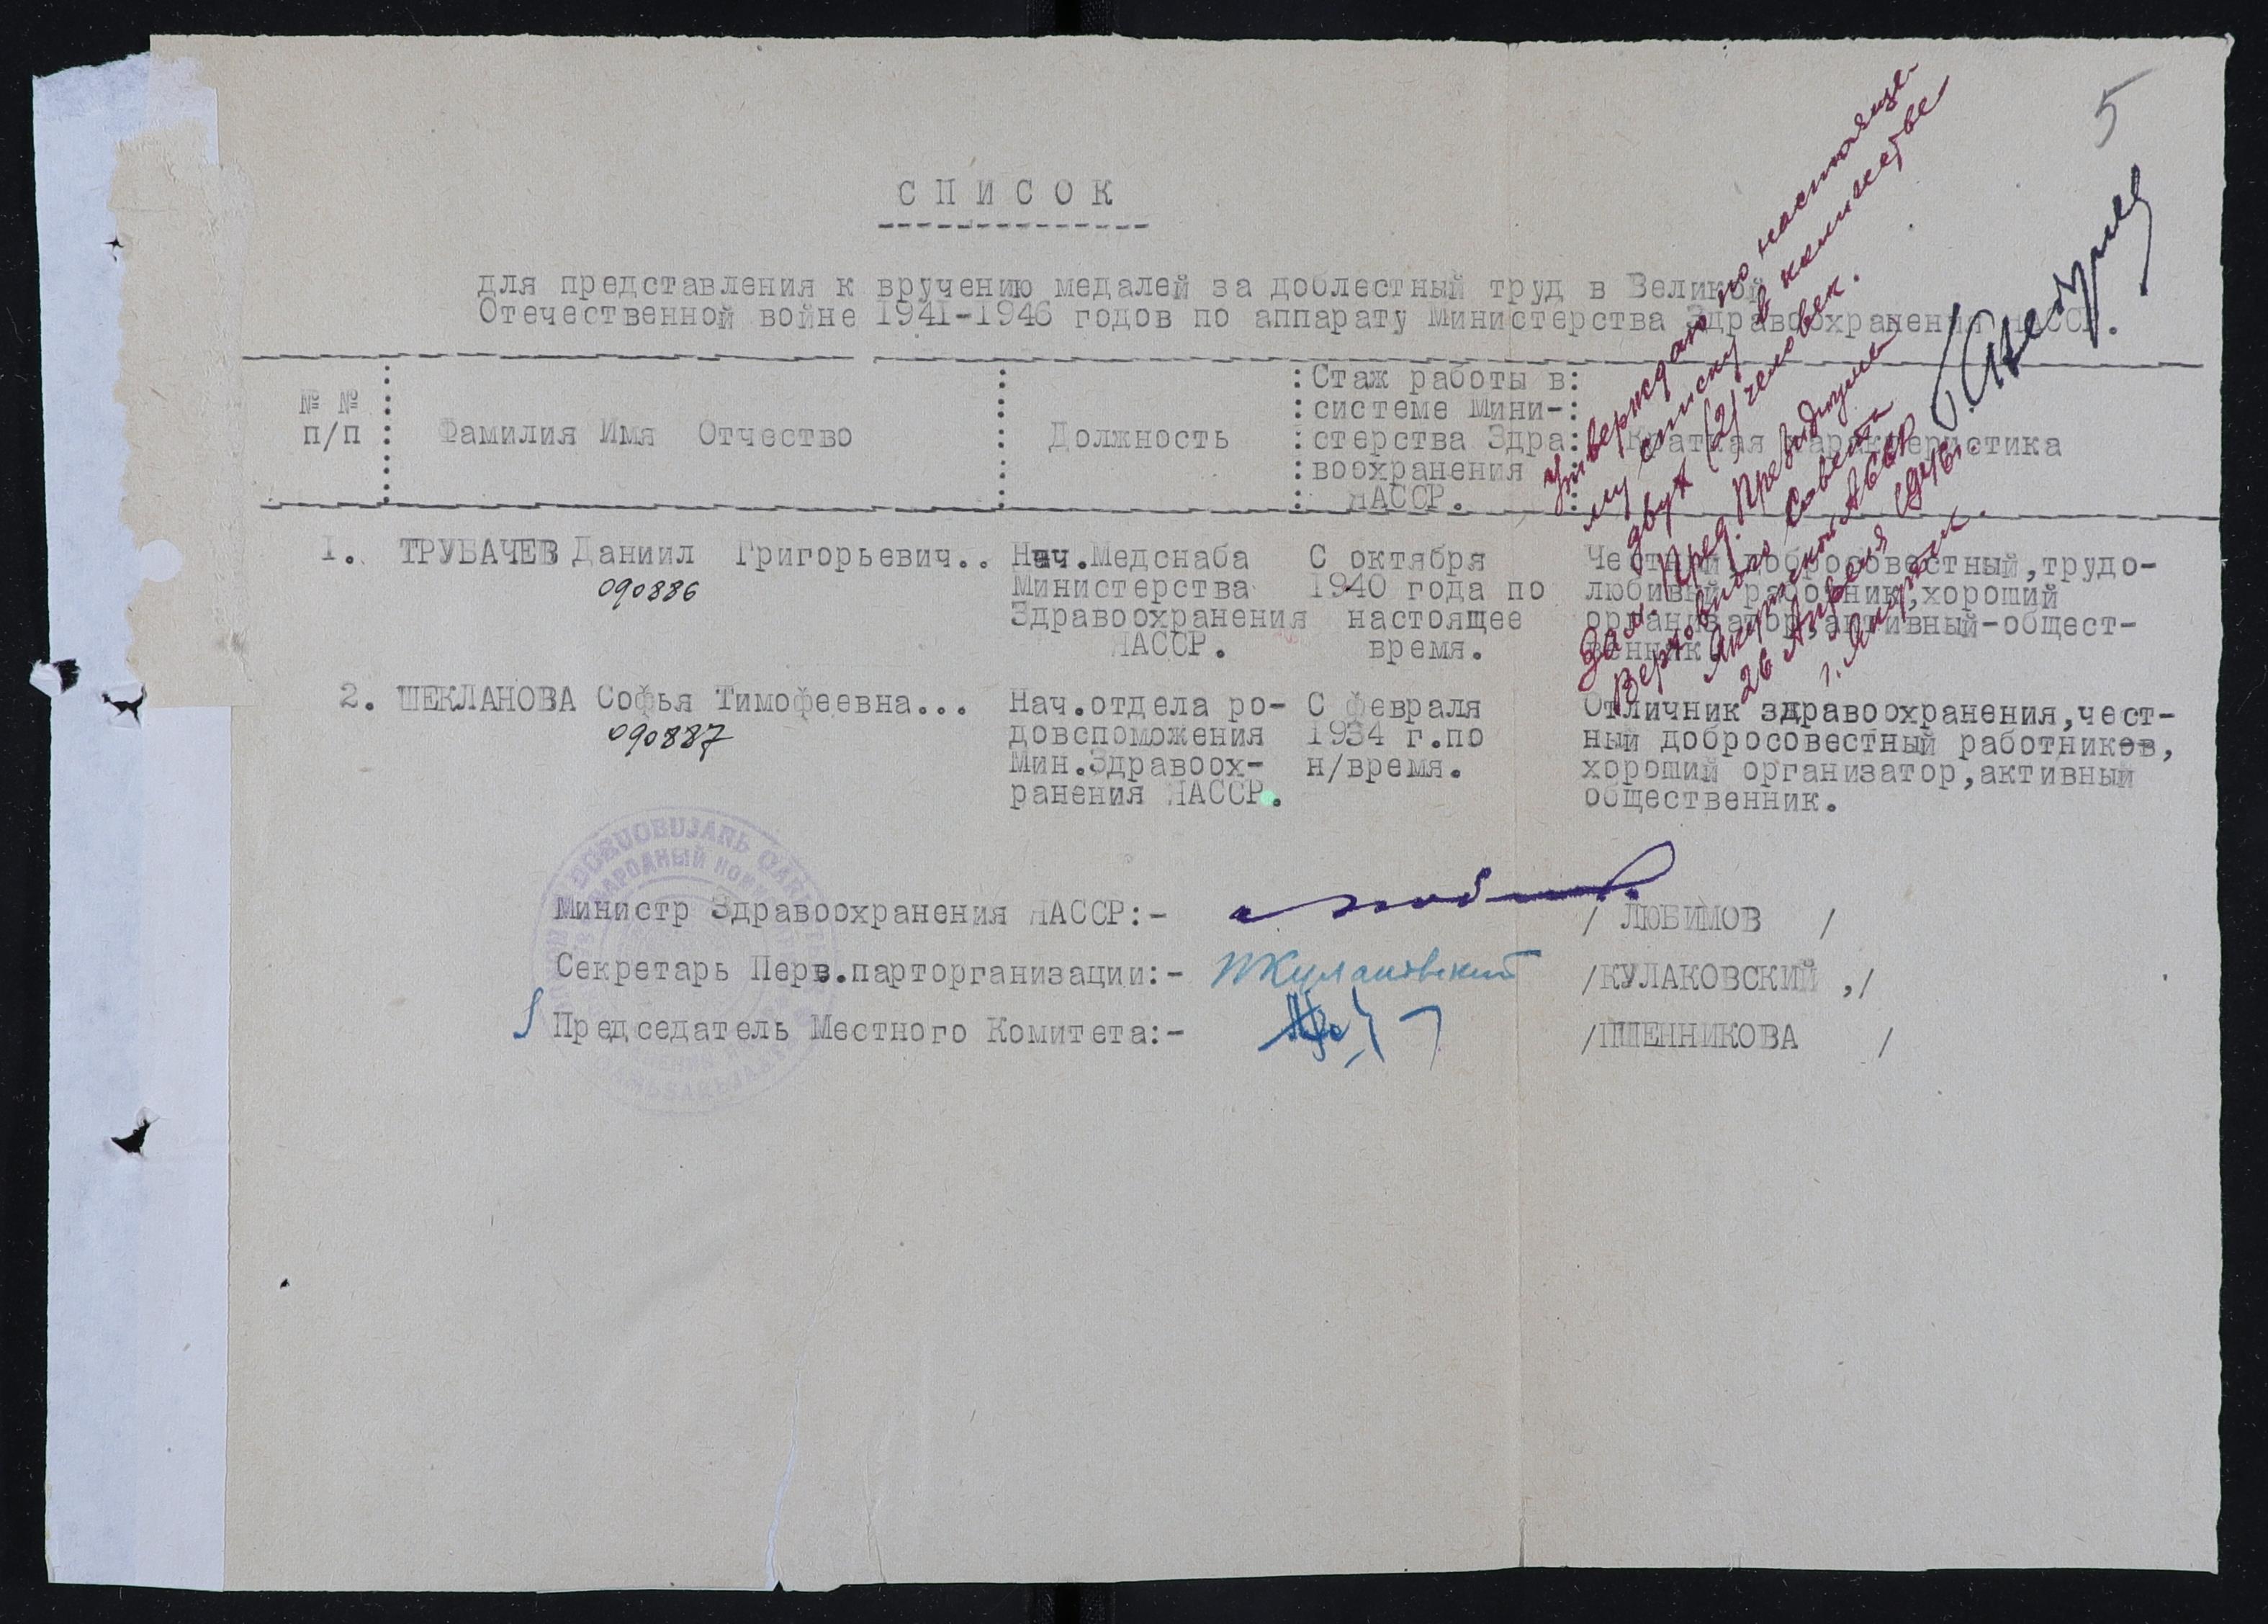 5
СПИСОК
для представления к вручению медалей за доблестный труд в Великой
Отечественной войне 1941-1946 годов по аппарату Министерства Здравоохранения ЯАССР.
№ № п/п
Фамилия Имя Отчество
Должность
Стаж работы в
системе Мини-
стерства Здра
воохранения
ЯАССР.
Краткая характеристика
Утверждаю по настояще
му списку в количестве
двух (2) человек.
Зам. Пред. Президиума
Верховного Совета
Якутской АССР
26 Апреля 1946 г.
г. Якутск.
1. ТРУБАЧЕВ Даниил Григорьевич..
090886
Нач.Медснаба
Министерства
Здравоохранения
ЯАССР.
С октября
1940 года по
настоящее
время.
Честный добросовестный,трудо-
любивый работник,хороший
организатор,активный-общест-
венник
2. ШЕКЛАНОВА Софья Тимофеевна...
090887
Нач.отдела ро-
довспоможения
Мин.Здравоох-
ранения ЯАССР.
С февраля
1934 г.по
н/время.
Отличник здравоохранения,чест-
ный добросовестный работников,
хороший организатор,активный
общественник.
Министр Здравоохранения ЯАССР:- / ЛЮБИМОВ /
Секретарь Перв.парторганизации:- ПКулаковский /КУЛАКОВСКИЙ ,/
Председатель Местного Комитета:- /ПШЕННИКОВА /
НАРОДНЫЙ